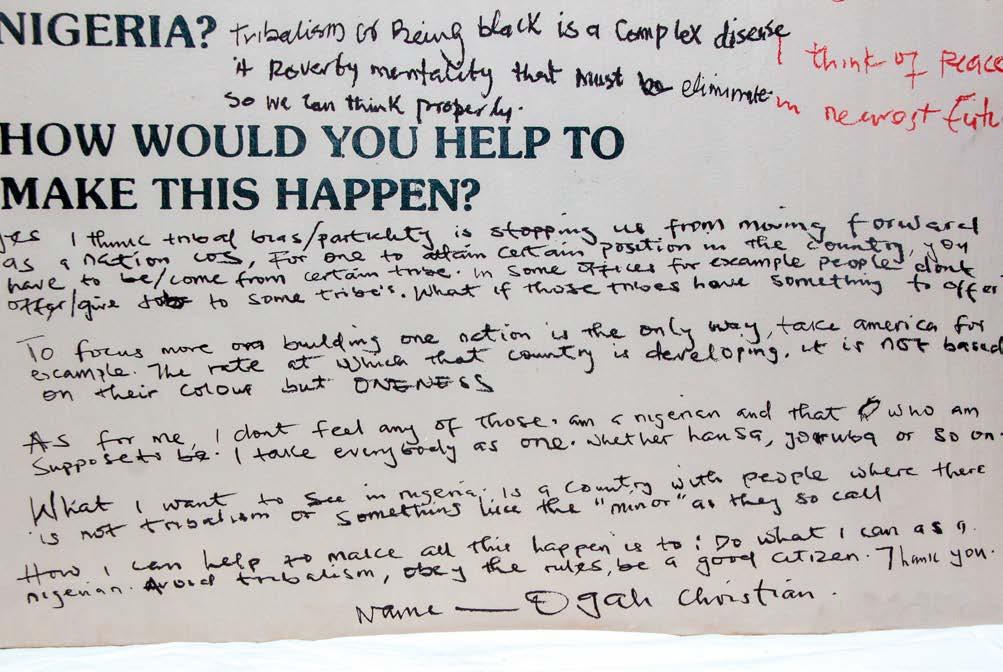 NIGERIA? tribalism or Being black is a complex disease
A Poverty mentality that must be eliminate
so we can think properly.
I think of Peace
in nearest futu
HOW WOULD YOU HELP TO
MAKE THIS HAPPEN?
yes I think tribal bias/partiality is stopping us from moving forward
as a nation cos, For one to attain certain position in the country, you
have to be/come from certain tribe. In some offices for example people dont
offer/give job to some tribe's. What if those tribes have something to offer
To focus more on building one nation is the only way, take america for
example. The rate at which that country is developing. it is not based
on their colour but ONENESS
As for me, I dont feel any of those. am a nigerian and that who am
Suppose to be. I take everybody as one. whether hausa, yoruba or so on.
What I want to see in nigeria. Is a country with people where there
is not tribalism or something like the "minor" as they so call
How I can help to make all this happen is to: Do what I can as a
nigerian. Avoid tribalism, obey the rules, be a good citizen. Thank you.
Name — Ogah Christian.